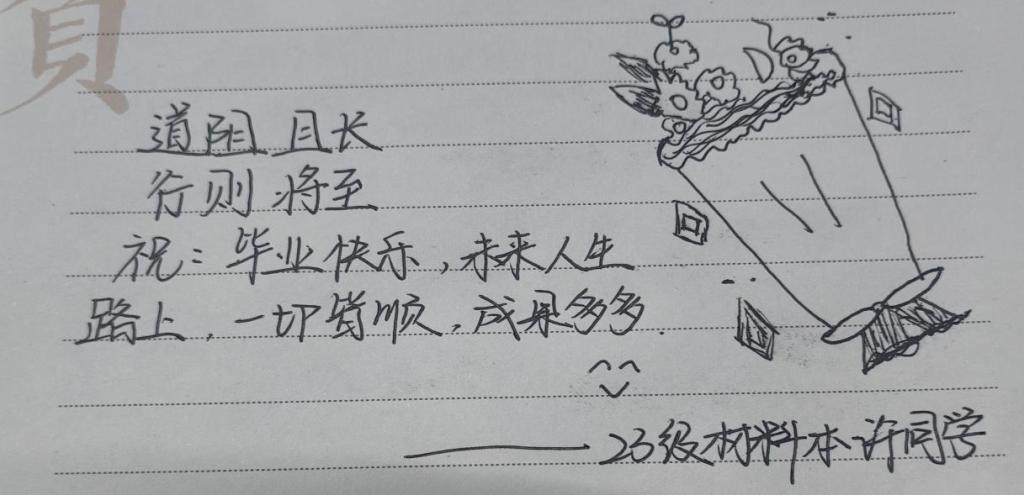 道阻且长
行则将至
祝：毕业快乐，未来人生
路上，一切皆顺，成果多多.
——23级材料本许同学